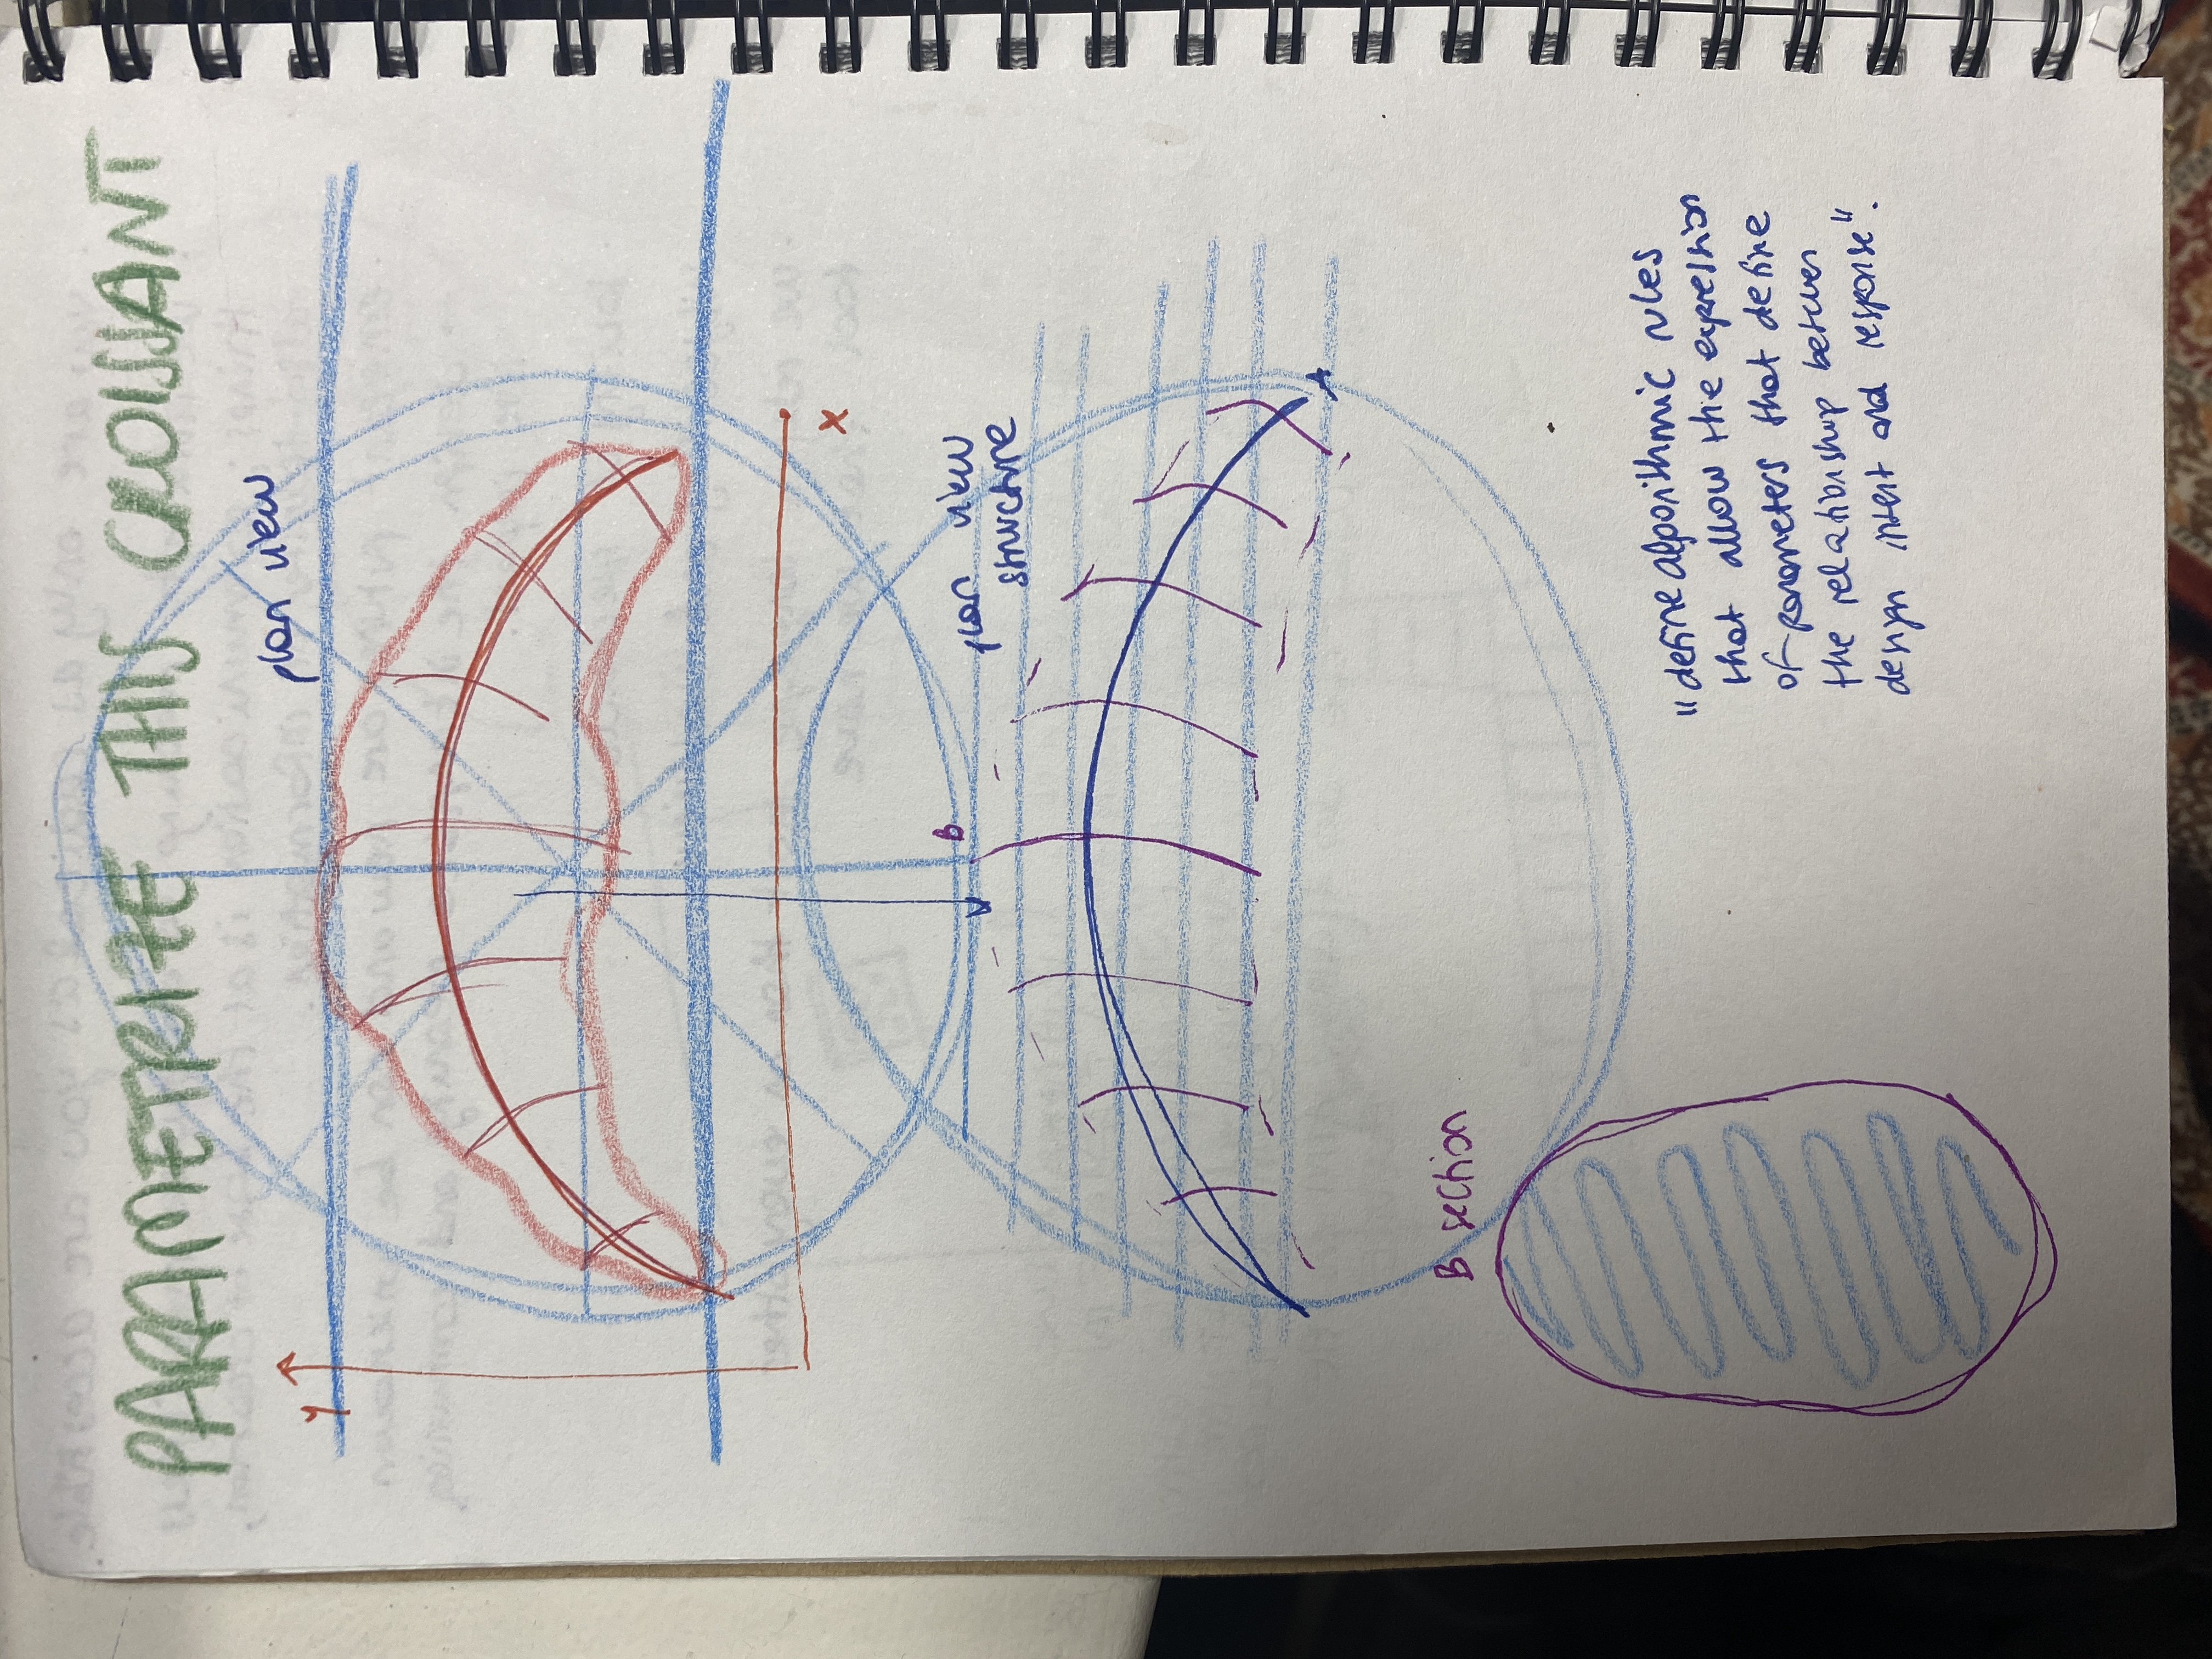 PARAMETRIZE THIS CROISSANT
plan view
Y
X
B
plan view
structure
A
B section
"define algorithmic rules
that allow the expression
of parameters that define
the relationship between
design intent and response".